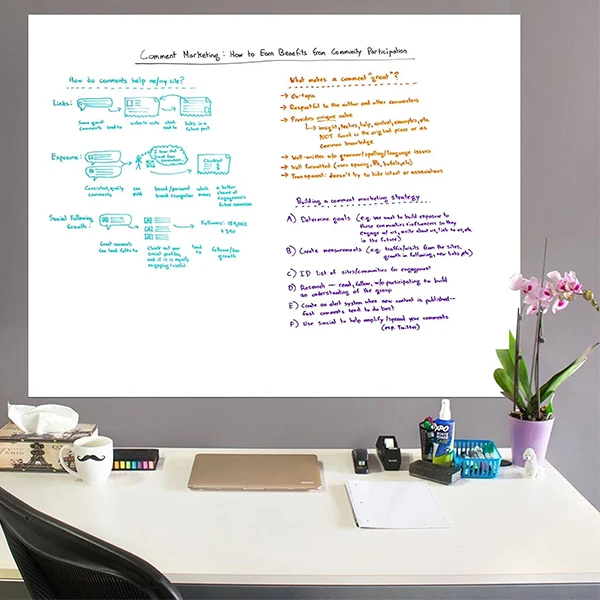 Comment Marketing: How to Earn Benefits from Community Participation
How do comments help me/my site?
Links:
Some great comments lead to
website visits
which lead to
links in a future post
Exposure:
Consistent, quality comments
can yield
brand/personal brand recognition
which means
a better chance of engagement/future conversion
Social Following Growth:
Great comments can lead folks to
Check out your social profiles, and if it is equally engaging/useful
lead to
follower/fan growth
Followers: 189,062
+ 390
What makes a comment "great"?
→ On-topic
→ Respectful to the author and other commenters
→ Provides unique value
↳ insight, tactics, help, context, examples, etc.
NOT found in the original piece or as
common knowledge
→ Well-written w/o grammar/spelling/language issues
→ Well formatted (uses spacing, ¶s, bullets, etc)
→ Transparent: doesn't try to hide intent or associations
Building a comment marketing strategy
A) Determine goals (e.g. we want to build exposure to
these communities + influencers so they
engage w/ us, write about us, link to us, etc.
in the future)
B) Create measurements (e.g. traffic/visits from the sites,
growth in following, new links, etc)
C) ID list of sites/communities for engagement
D) Research - read, follow, w/o participating to build
an understanding of the group
E) Create an alert system when new content is published--
fast comments tend to do best
F) Use social to help amplify/spread your comments
(esp. Twitter)
PARIS
EXPO